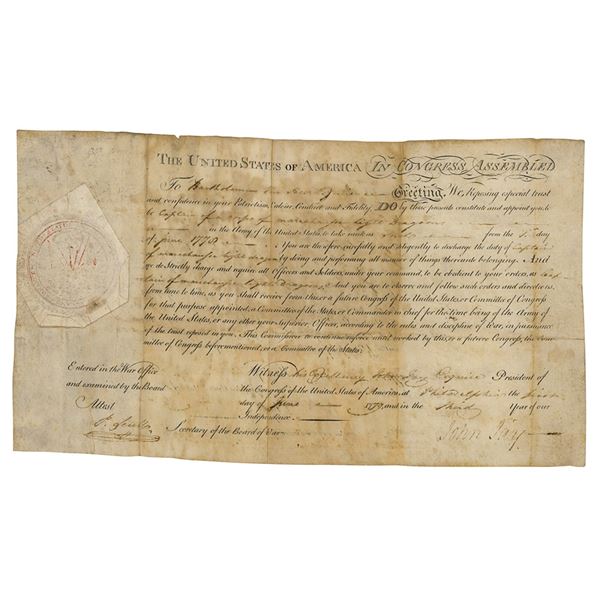 THE UNITED STATES OF AMERICA IN CONGRESS ASSEMBLED
To Bartholomew Greeting. We, Reposing especial trust
and confidence in your Patriotism, Valour, Conduct and Fidelity, DO by these presents constitute and appoint you to
be Captain of
in the Army of the United States, to take rank as such from the 1st day
of June 1778 You are therefore carefully and diligently to discharge the duty of Captain
of by doing and performing all manner of things thereunto belonging. And
we do Strictly charge and require all Officers and Soldiers, under your command, to be obedient to your orders, as Cap
tain of And you are to observe and follow such orders and directions,
from time to time, as you shall receive from this, or a future Congress of the United States, or Committee of Congress
for that purpose appointed, a Committee of the States, or Commander in chief for the time being of the Army of
the United States, or any other your Superior Officer, according to the rules and discipline of War, in pursuance
of the trust reposed in you. This Commission to continue in force until revoked by this, or a future Congress, the Com
mittee of Congress beforementioned, or a Committee of the States.
Entered in the War Office
and examined by the Board
Attest
Secretary of the Board of War
Witness His Excellency John Jay Esquire President of
the Congress of the United States of America, at Philadelphia the first
day of June 1779, and in the third Year of our
Independence
John Jay